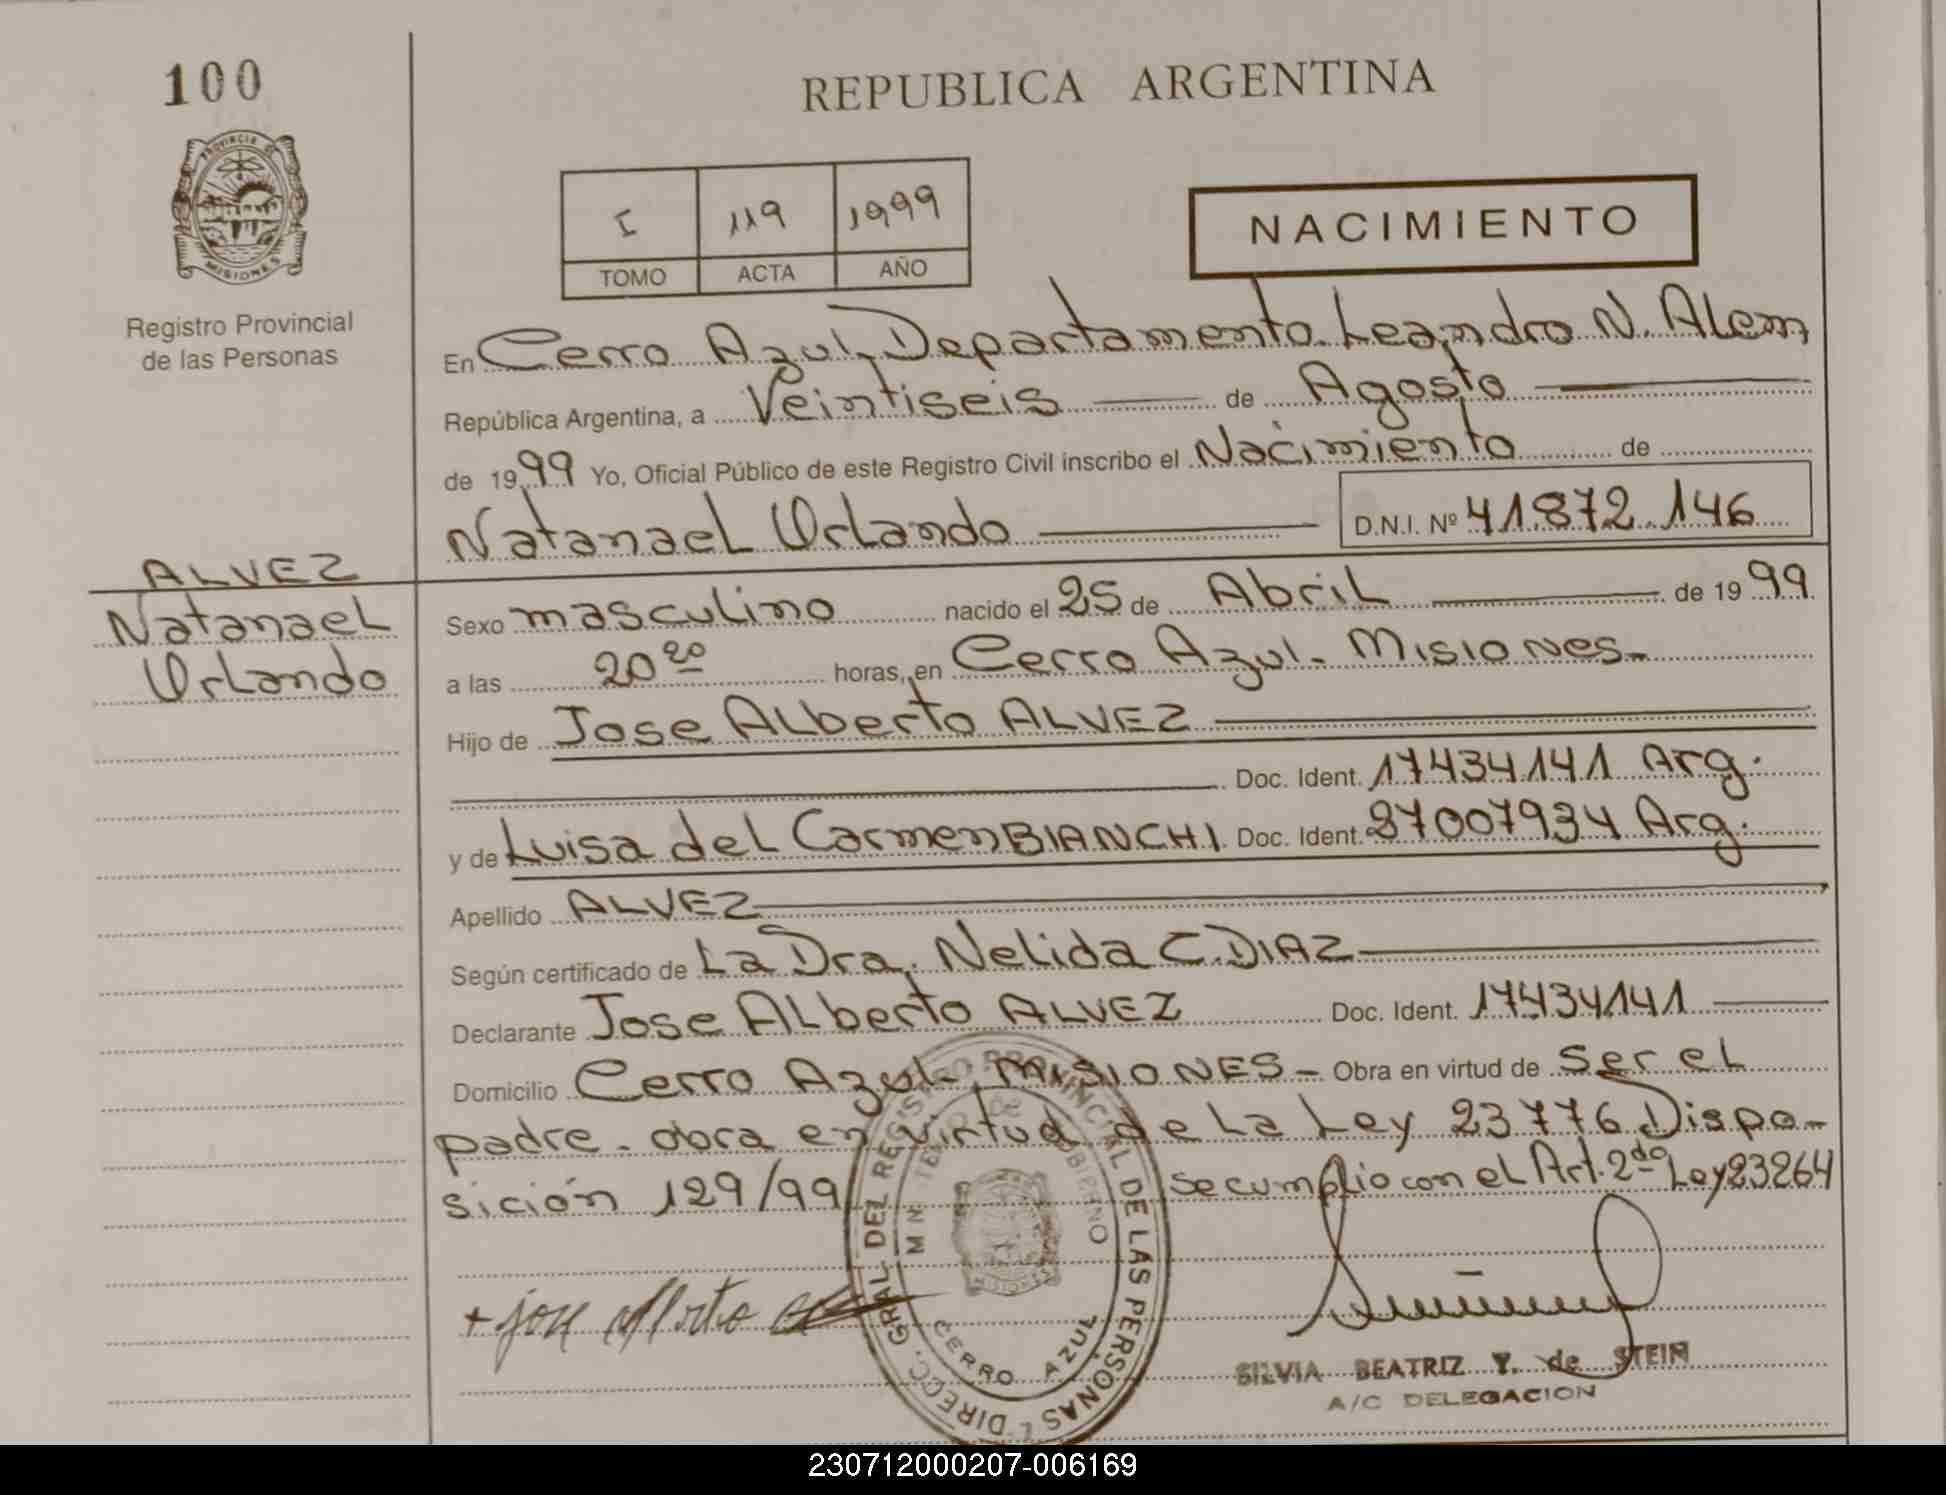 100
REPUBLICA ARGENTINA
PROVINCIA DE MISIONES
I 119 1999
TOMO ACTA AÑO
NACIMIENTO
Registro Provincial
de las Personas
En Cerro Azul, Departamento Leandro N. Alem
República Argentina, a Veintiseis de Agosto
de 1999 Yo, Oficial Público de este Registro Civil inscribo el Nacimiento de
Natanael Orlando D.N.I. Nº 41.872.146
ALVEZ
Natanael
Orlando
Sexo masculino nacido el 25 de Abril de 1999
a las 20 20 horas, en Cerro Azul - Misiones -
Hijo de Jose Alberto ALVEZ
Doc. Ident. 17434141 Arg.
y de Luisa del Carmen BIANCHI Doc. Ident. 27007934 Arg.
Apellido ALVEZ
Según certificado de La Dra. Nelida C. DIAZ
Declarante Jose Alberto ALVEZ Doc. Ident. 17434141
Domicilio Cerro Azul - MISIONES - Obra en virtud de ser el
padre - obra en virtud de la Ley 23776 Dispo-
sición 129/99 se cumplio con el Art. 2do Ley 23264
+ jose alberto
DIRECC. GRAL. DEL REGISTRO PROVINCIAL DE LAS PERSONAS
CERRO AZUL
MISIONES
SILVIA BEATRIZ Y. de STEIN
A/C DELEGACION
230712000207-006169